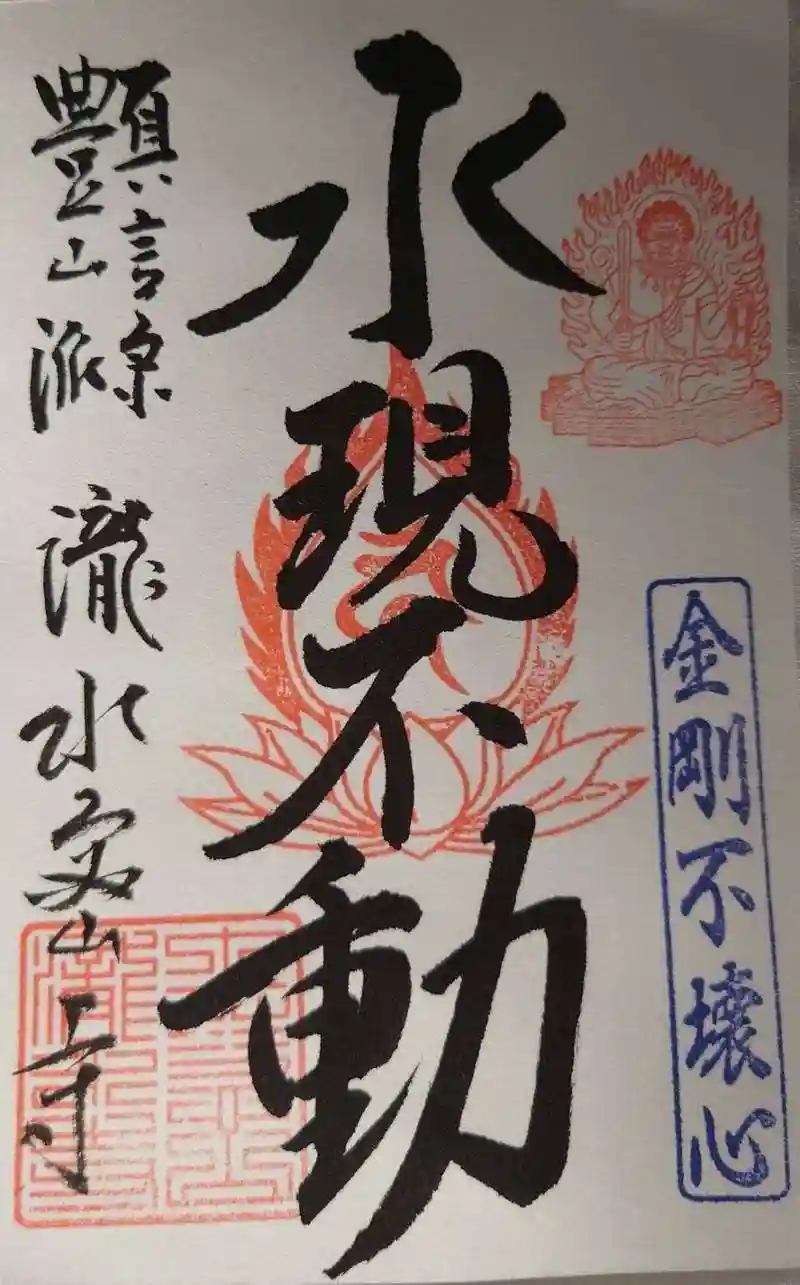 金剛不壊心
水現不動
真言宗
豊山派
瀧水 山寺